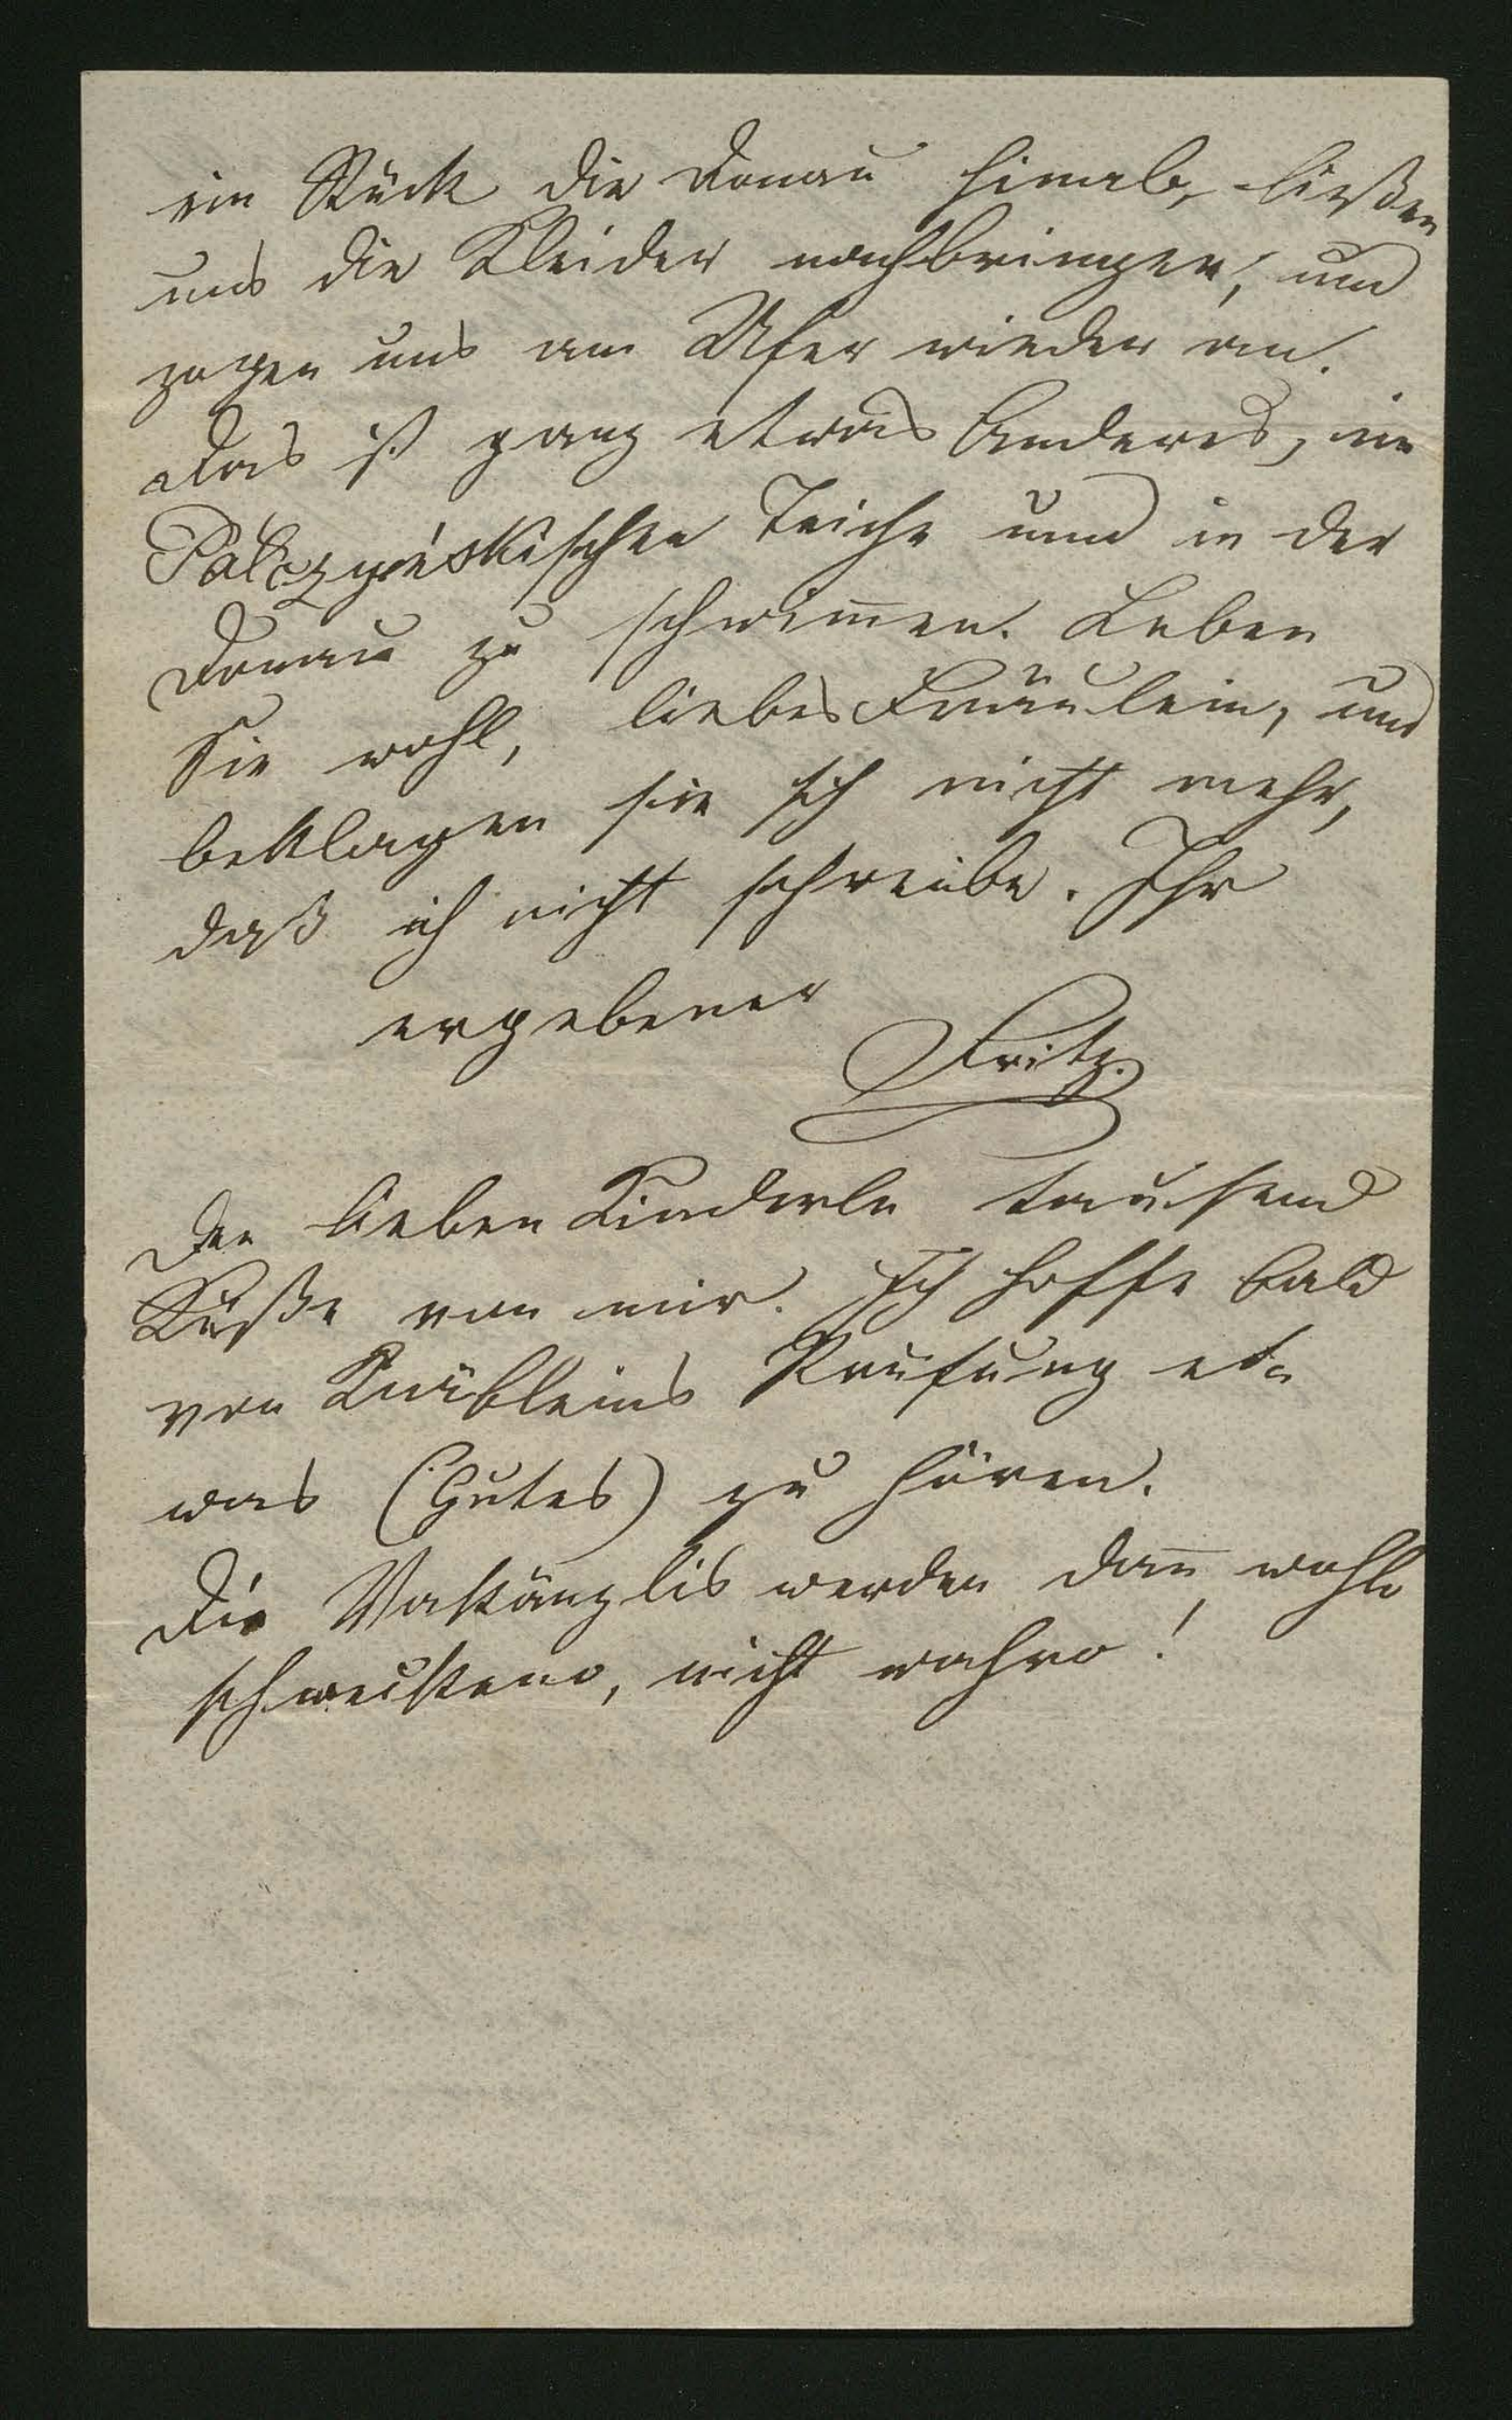 ein Stück die Donau hinab, ließen
uns die Kleider nachbringen, und
zogen uns am Ufer wieder an.
Das ist ganz etwas Anderes, im
Teiche und in der
Donau zu schwim̅en. Leben
Sie wohl, liebes Fräulein, und
beklagen sie sich nicht mehr,
daß ich nicht schreibe. Ihr
ergebener
Fritz.
Den lieben Kinderln tausend
Küße von mir. Ich hoffe bald
von Prüfung et-
was (Gutes) zu hören.
Die werden dan̅ wohl
nicht wahr!